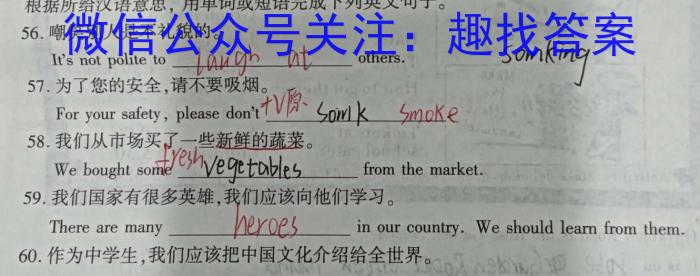 根据所给汉语意思，用单词或短语完成下列英文句子。
56. 嘲笑别人是不礼貌的。
微信公众号关注：趣找答案
It's not polite to laugh at others. somking
57. 为了您的安全,请不要吸烟。
For your safety, please don't +V原. somk smoke
58. 我们从市场买了一些新鲜的蔬菜。
We bought some fresh vegetables from the market.
59. 我们国家有很多英雄,我们应该向他们学习。
There are many heroes in our country. We should learn from them.
60. 作为中学生,我们应该把中国文化介绍给全世界。